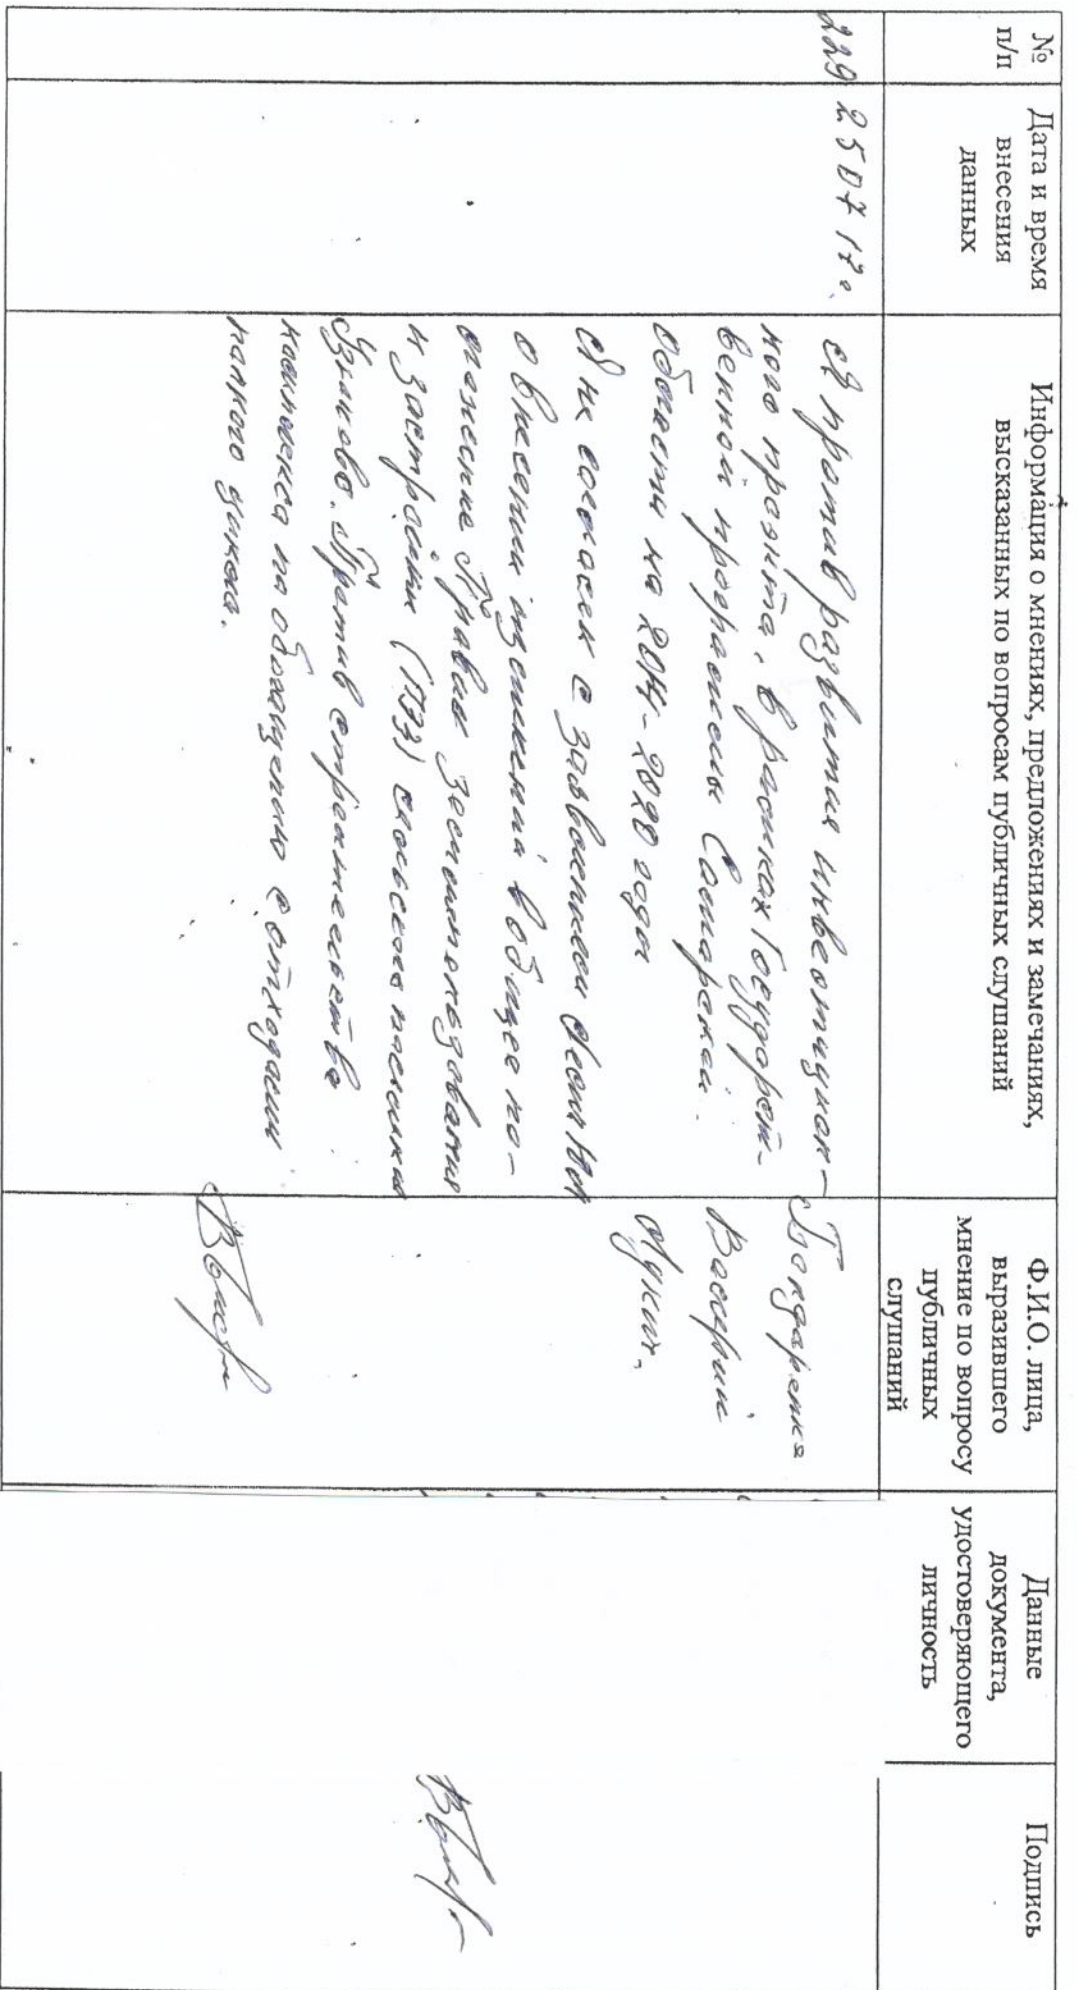 №
п/п
Дата и время
внесения
данных
Информация о мнениях, предложениях и замечаниях,
высказанных по вопросам публичных слушаний
Ф.И.О. лица,
выразившего
мнение по вопросу
публичных
слушаний
Данные
документа,
удостоверяющего
личность
Подпись
229
25 07 17г.
Я против развития инвестицион-
ного проэкта, в рамках Государст-
венной программы Самарской
области на 2014-2020 годы
Я не согласен с заявлением
о внесении изменений в общее по-
ложение Правил землепользования
и застройки (ПЗЗ) сельского поселения
Узюково. Против строительства
комплекса по обращению с отходами
малого цикла.
Бондаренко
Василий